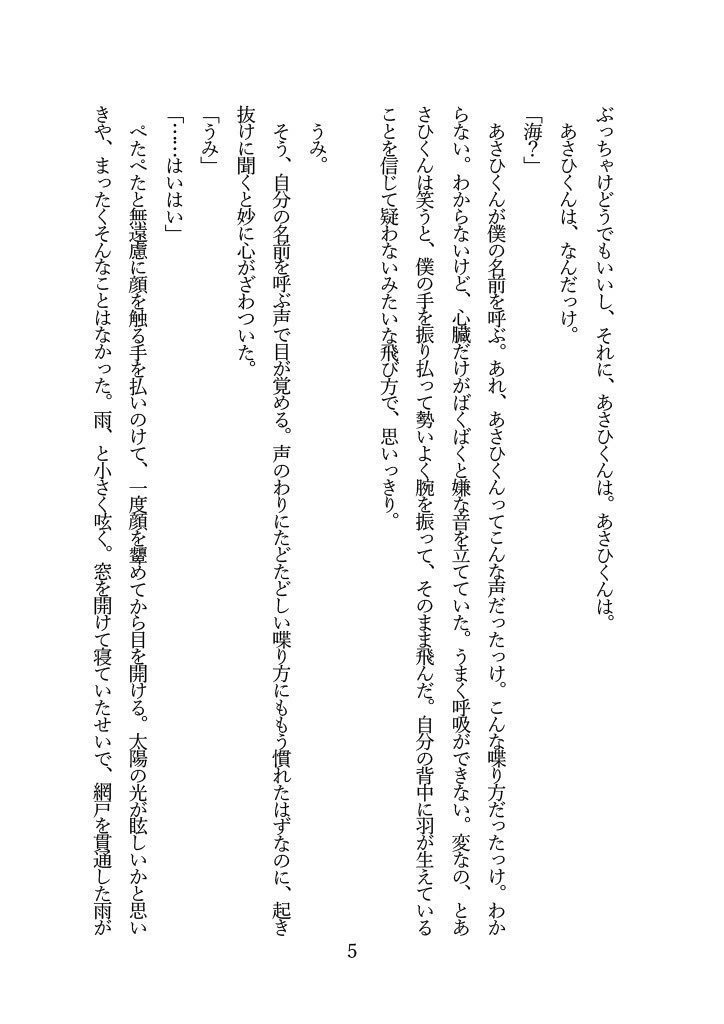 ぶっちゃけどうでもいいし、それに、あさひくんは。あさひくんは。
あさひくんは、なんだっけ。
「海？」
あさひくんが僕の名前を呼ぶ。あれ、あさひくんってこんな声だったっけ。こんな喋り方だったっけ。わか
らない。わからないけど、心臓だけがばくばくと嫌な音を立てていた。うまく呼吸ができない。変なの、とあ
さひくんは笑うと、僕の手を振り払って勢いよく腕を振って、そのまま飛んだ。自分の背中に羽が生えている
ことを信じて疑わないみたいな飛び方で、思いっきり。
うみ。
そう、自分の名前を呼ぶ声で目が覚める。声のわりにたどたどしい喋り方にももう慣れたはずなのに、起き
抜けに聞くと妙に心がざわついた。
「うみ」
「……はいはい」
ぺたぺたと無遠慮に顔を触る手を払いのけて、一度顔を顰めてから目を開ける。太陽の光が眩しいかと思い
きや、まったくそんなことはなかった。雨、と小さく呟く。窓を開けて寝ていたせいで、網戸を貫通した雨が
5